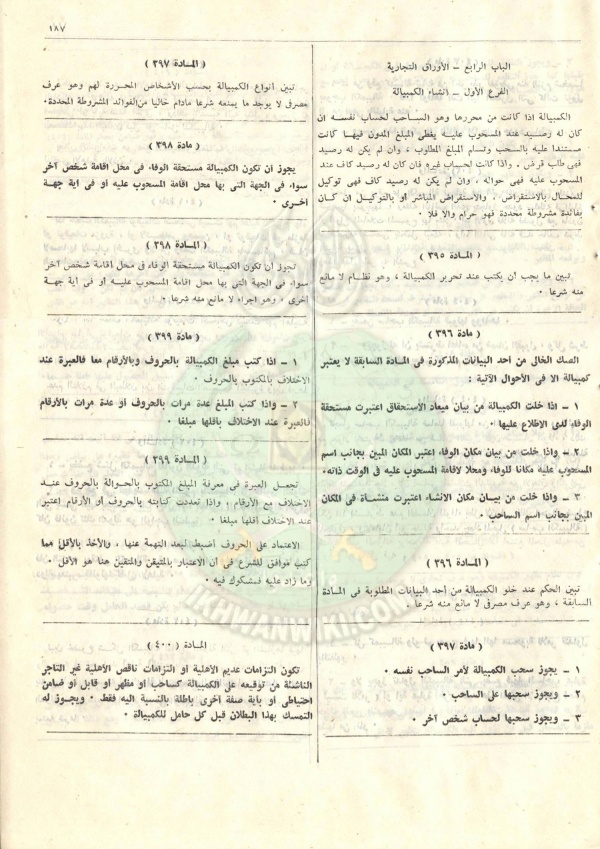 ١٨٧
الباب الرابع – الأوراق التجارية
الفرع الأول – انشاء الكمبيالة
الكمبيالة اذا كانت من محررها وهو الساحب لحساب نفسه ان
كان له رصيد عند المسحوب عليه يغطى المبلغ المدون فيها كانت
مستندا عليه بالسحب وتسلم المبلغ المطلوب ، وان لم يكن له رصيد
فهى طلب قرض ، واذا كانت لحساب غيره فان كان له رصيد كاف عند
المسحوب عليه فهى حواله ، وان لم يكن له رصيد كاف فهى توكيل
للمحال بالاستقراض ، والاستقراض المباشر أو بالتوكيل ان كان
بفائدة مشروطة محددة فهو حرام والا فلا .
( المسادة ٣٩٥ )
تبين ما يجب أن يكتب عند تحرير الكمبيالة ، وهو نظام لا مانع
منه شرعا .
( مادة ٣٩٦ )
الصك الخالى من أحد البيانات المذكورة فى المادة السابقة لا يعتبر
كمبيالة الا فى الأحوال الآتية :
١ – اذا خلت الكمبيالة من بيان ميعاد الاستحقاق اعتبرت مستحقة
الوفاء لدى الاطلاع عليها .
٢ – واذا خلت من بيان مكان الوفاء اعتبر المكان المبين بجانب اسم
المسحوب عليه مكانا للوفاء ومحلا لاقامة المسحوب عليه فى الوقت ذاته .
٣ – واذا خلت من بيان مكان الانشاء اعتبرت منشأة فى المكان
المبين بجانب اسم الساحب .
( المسادة ٣٩٦ )
تبين الحكم عند خلو الكمبيالة من أحد البيانات المطلوبة فى المادة
السابقة ، وهو عرف مصرفى لا مانع منه شرعا .
( مادة ٣٩٧ )
١ – يجوز سحب الكمبيالة لأمر الساحب نفسه .
٢ – ويجوز سحبها على الساحب .
٣ – ويجوز سحبها لحساب شخص آخر .
( المسادة ٣٩٧ )
تبين أنواع الكمبيالة بحسب الأشخاص المحررة لهم وهو عرف
مصرفى لا يوجد ما يمنعه شرعا مادام خاليا من الفوائد المشروطة المحددة .
( مادة ٣٩٨ )
يجوز أن تكون الكمبيالة مستحقة الوفاء فى محل اقامة شخص آخر
سواء فى الجهة التى بها محل اقامة المسحوب عليه أو فى أية جهة
أخرى .
( المسادة ٣٩٨ )
تجوز أن تكون الكمبيالة مستحقة الوفاء فى محل اقامة شخص آخر
سواء فى الجهة التى بها محل اقامة المسحوب عليه أو فى أية جهة
أخرى ، وهو اجراء لا مانع منه شرعا .
( مادة ٣٩٩ )
١ – اذا كتب مبلغ الكمبيالة بالحروف وبالأرقام معا فالعبرة عند
الاختلاف بالمكتوب بالحروف .
٢ – واذا كتب المبلغ عدة مرات بالحروف أو عدة مرات بالأرقام
فالعبرة عند الاختلاف بأقلها مبلغا .
( المسادة ٣٩٩ )
تجعل العبرة فى معرفة المبلغ المكتوب بالحوالة بالحروف عند
الاختلاف مع الأرقام ، واذا تعددت كتابته بالحروف أو الأرقام اعتبر
عند الاختلاف أقلها مبلغا .
الاعتماد على الحروف أضبط لبعد التهمة عنها ، والأخذ بالأقل مما
كتب موافق للشرع فى أن الاعتبار بالمتيقن والمتيقن هنا هو الأقل .
وما زاد عليه فمشكوك فيه .
المادة ( ٤٠٠ )
تكون التزامات عديم الأهلية أو التزامات ناقص الأهلية غير التاجر
الناشئة من توقيعه على الكمبيالة كساحب أو مظهر أو قابل أو ضامن
احتياطى أو بأية صفة أخرى باطلة بالنسبة اليه فقط . ويجوز له
التمسك بهذا البطلان قبل كل حامل للكمبيالة .
IKHWANWIKI.COM